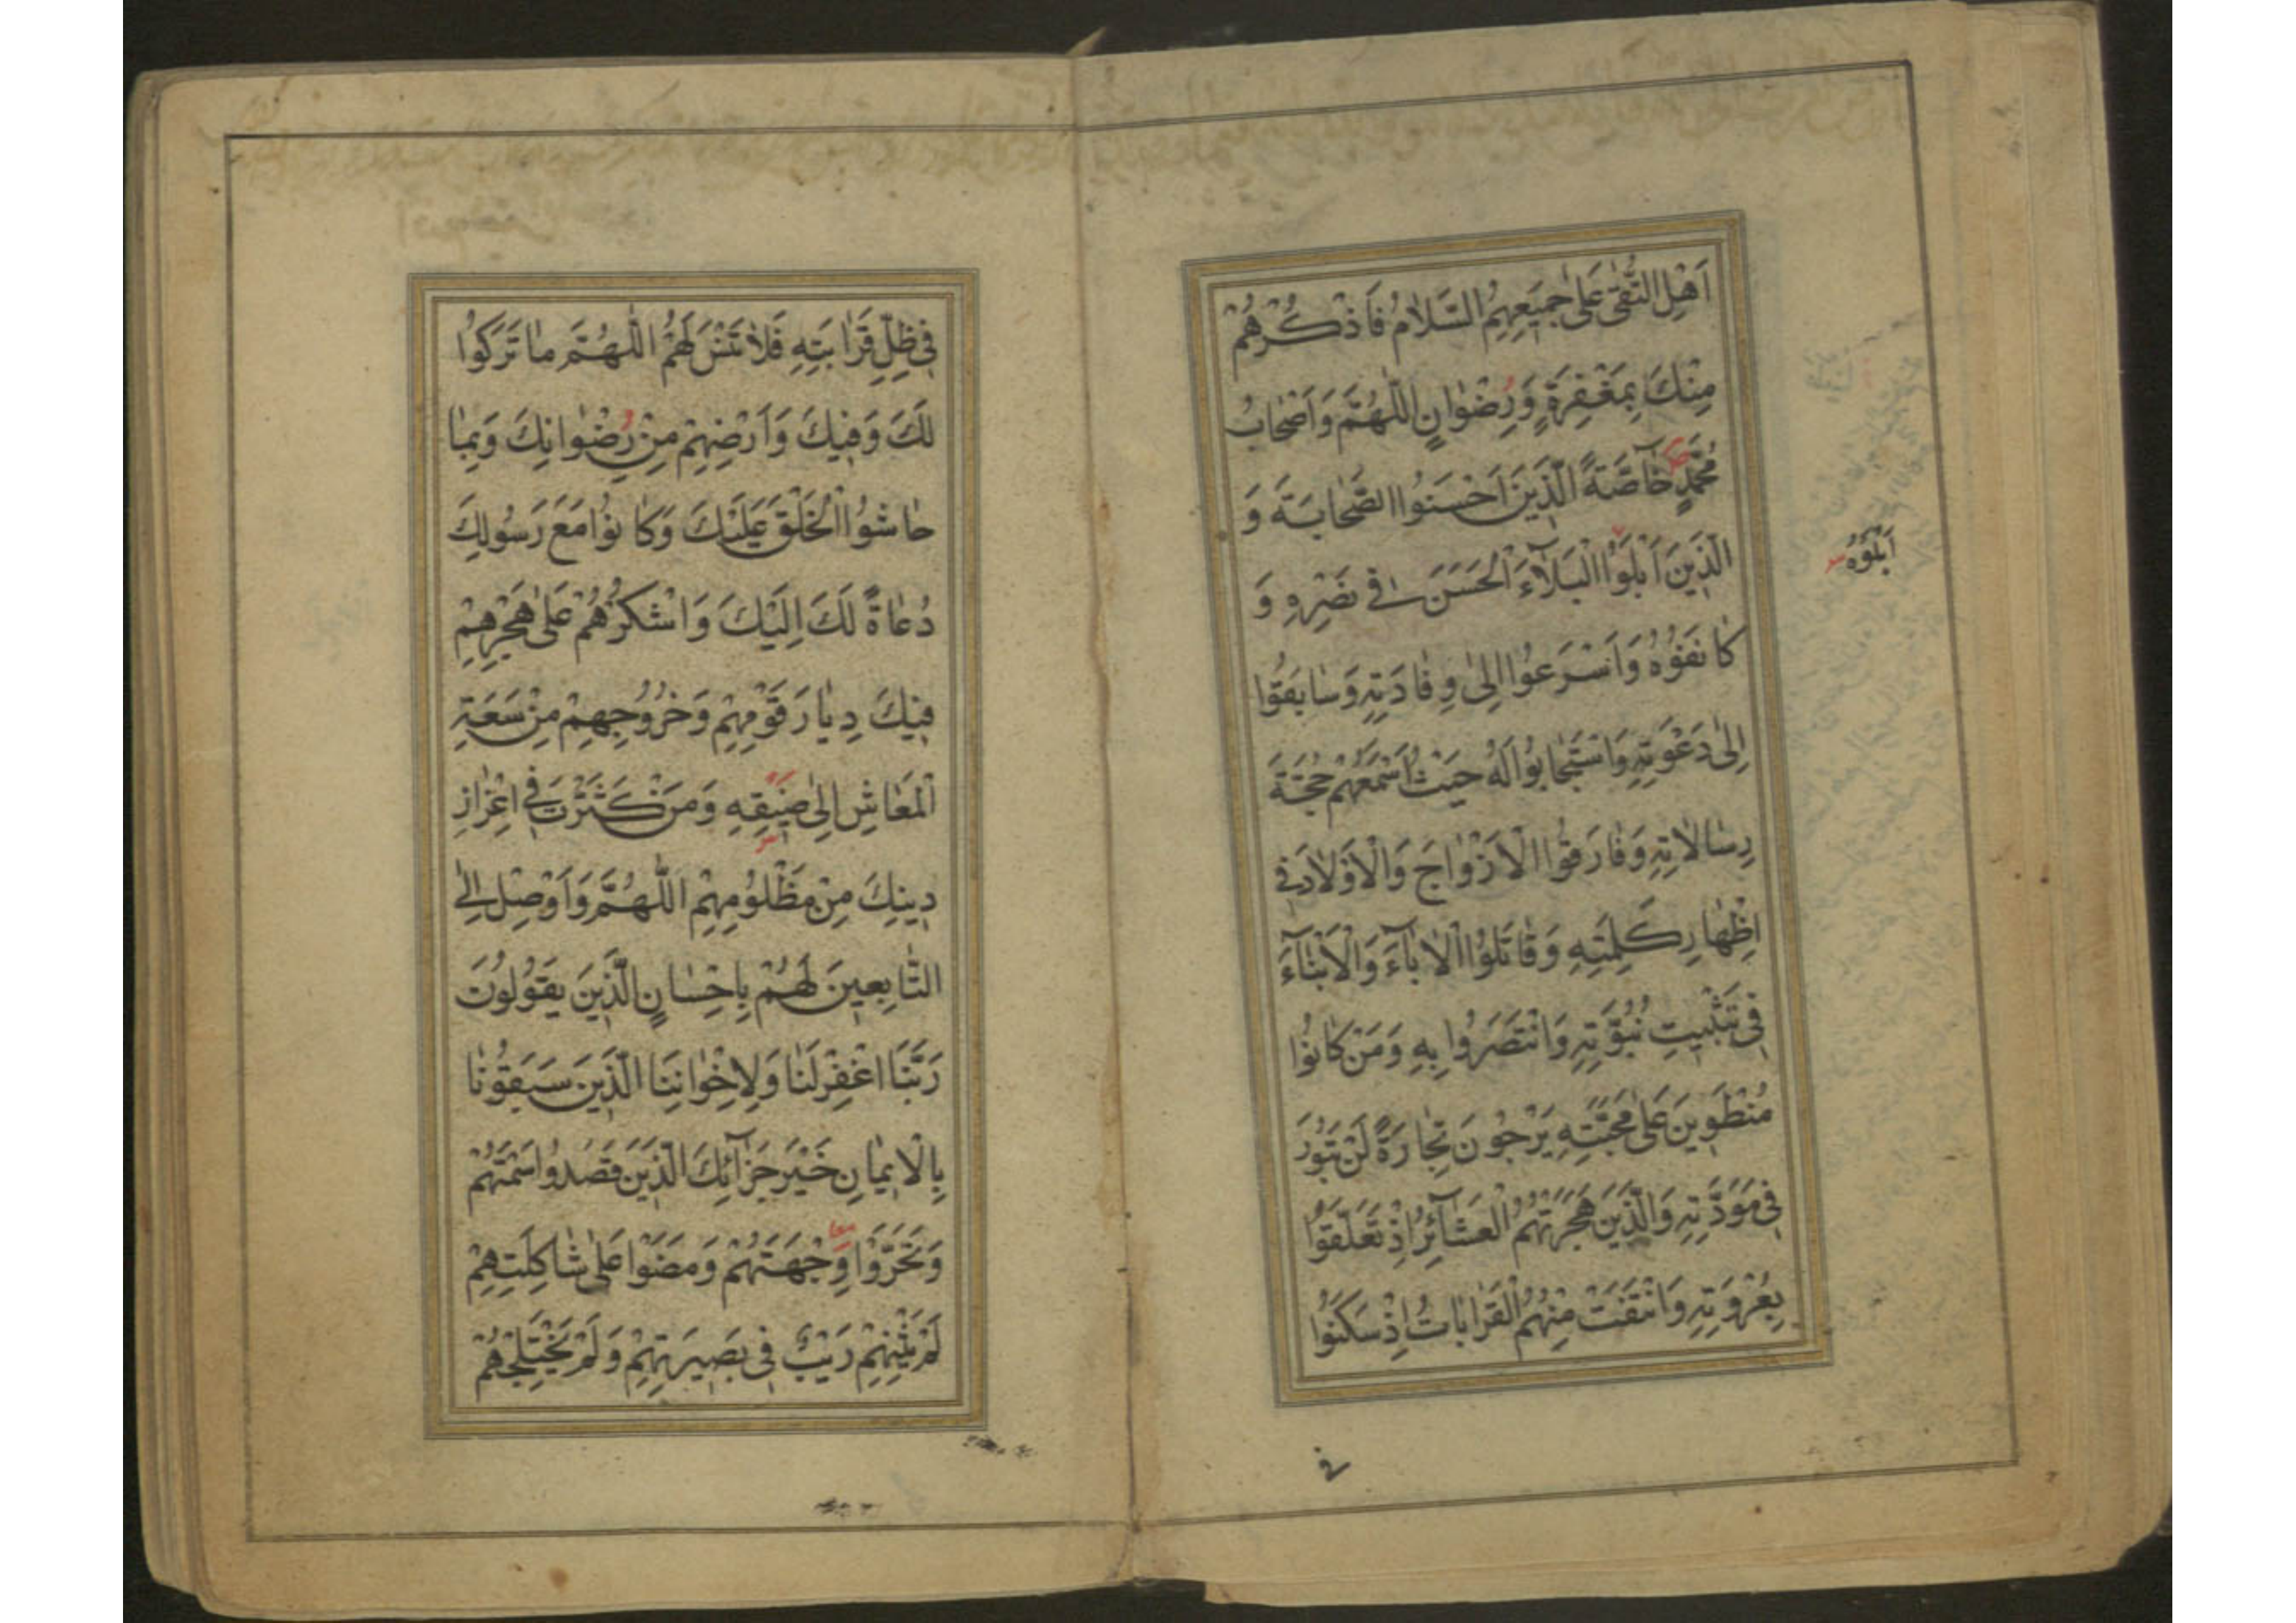 اَهْلِ التُّقىٰ عَلىٰ جَمِيعِهِمُ السَّلامُ فَاذْكُرْهُمْ
مِنْكَ بِمَغْفِرَةٍ وَرِضْوٰانٍ اللّٰهُمَّ وَاَصْحٰابُ
مُحَمَّدٍ خٰآصَّةً الَّذِينَ اَحْسَنُوا الصَّحٰابَةَ وَ
الَّذِينَ اَبْلَوُا الْبَلآءَ الْحَسَنَ فِي نَصْرِهِ وَ
اَبْلَوْهُ
كٰانَفُوهُ وَاَسْرَعُوا اِلىٰ وِفٰادَتِهِ وَسٰابَقُوا
اِلىٰ دَعْوَتِهِ وَاسْتَجٰابُوا لَهُ حَيْثُ اَسْمَعَهُمْ حُجَّةَ
رِسٰالاٰتِهِ وَفٰارَقُوا الْاَزْوٰاجَ وَالْاَوْلاٰدَ فِي
اِظْهٰارِ كَلِمَتِهِ وَقٰاتَلُوا الْاٰبٰآءَ وَالْاَبْنٰآءَ
فِي تَثْبِيتِ نُبُوَّتِهِ وَانْتَصَرُوا بِهِ وَمَنْ كٰانُوا
مُنْطَوِينَ عَلىٰ مَحَبَّتِهِ يَرْجُونَ تِجٰارَةً لَنْ تَبُورَ
فِي مَوَدَّتِهِ وَالَّذِينَ هَجَرَتْهُمُ الْعَشٰآئِرُ اِذْ تَعَلَّقُوا
بِعُرْوَتِهِ وَانْتَفَتْ مِنْهُمُ الْقَرٰابٰاتُ اِذْ سَكَنُوا
فى
فِي ظِلِّ قَرٰابَتِهِ فَلاٰ تَنْسَ لَهُمُ اللّٰهُمَّ مٰا تَرَكُوا
لَكَ وَفِيكَ وَاَرْضِهِمْ مِنْ رِضْوٰانِكَ وَبِمٰا
حٰاشُوا الْخَلْقَ عَلَيْكَ وَكٰانُوا مَعَ رَسُولِكَ
دُعٰاةً لَكَ اِلَيْكَ وَاشْكُرْهُمْ عَلىٰ هَجْرِهِمْ
فِيكَ دِيٰارَ قَوْمِهِمْ وَخُرُوجِهِمْ مِنْ سَعَةِ
الْمَعٰاشِ اِلىٰ ضِيقِهِ وَمَنْ كَثَّرْتَ فِي اِعْزٰازِ
دِينِكَ مِنْ مَظْلُومِهِمْ اَللّٰهُمَّ وَاَوْصِلْ اِلَى
التّٰابِعِينَ لَهُمْ بِاِحْسٰانٍ الَّذِينَ يَقُولُونَ
رَبَّنَا اغْفِرْ لَنٰا وَلِاِخْوٰانِنَا الَّذِينَ سَبَقُونٰا
بِالْاِيمٰانِ خَيْرَ جَزٰآئِكَ الَّذِينَ قَصَدُوا سَمْتَهُمْ
وَتَحَرَّوْا وِجْهَتَهُمْ وَمَضَوْا عَلىٰ شٰاكِلَتِهِمْ
لَمْ يَثْنِهِمْ رَيْبٌ فِي بَصِيرَتِهِمْ وَلَمْ يَخْتَلِجْهُمْ